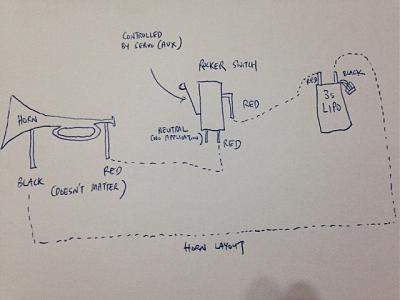 CONTROLLED
BY SERVO (AUX)
ROCKER SWITCH
RED
BLACK
HORN
RED
3s
LIPO
NEUTRAL
(NO APPLICATION)
RED
BLACK
RED
(DOESN'T MATTER)
HORN LAYOUT